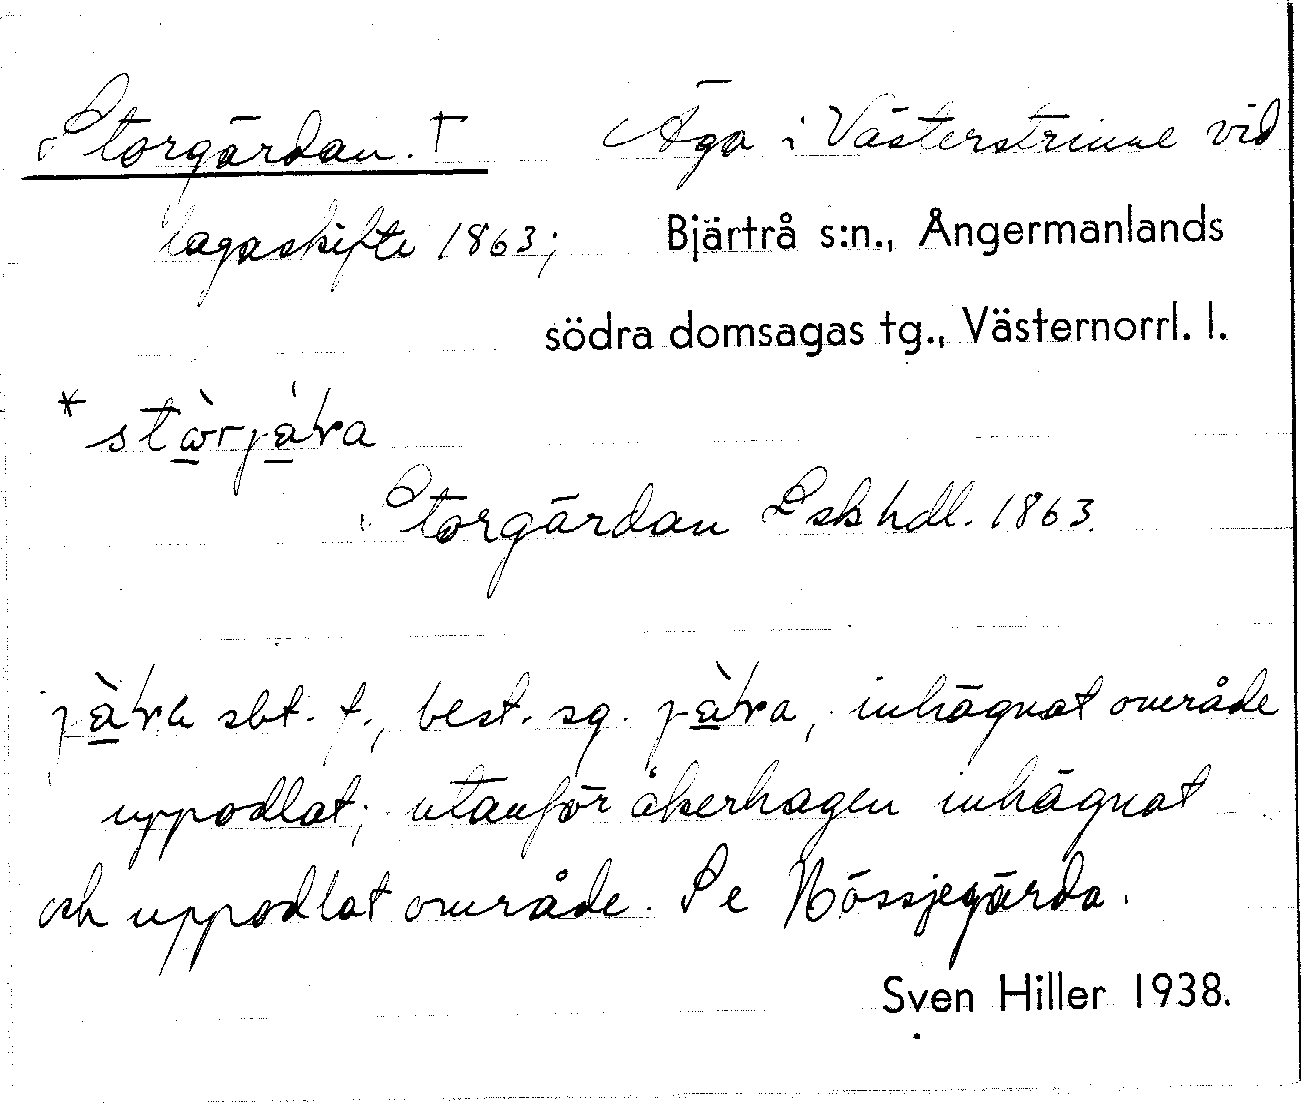 Storgärdan. † Äga i Västerstrinne vid
lagaskifte 1863; Bjärtrå s:n., Ångermanlands
södra domsagas tg., Västernorrl. l.
Storgärdan Lskhdl. 1863.
sbt. f., best. sg. inhägnat område
uppodlat; utanför åkerhagen inhägnat
och uppodlat område. Se Nössjegärda.
Sven Hiller 1938.